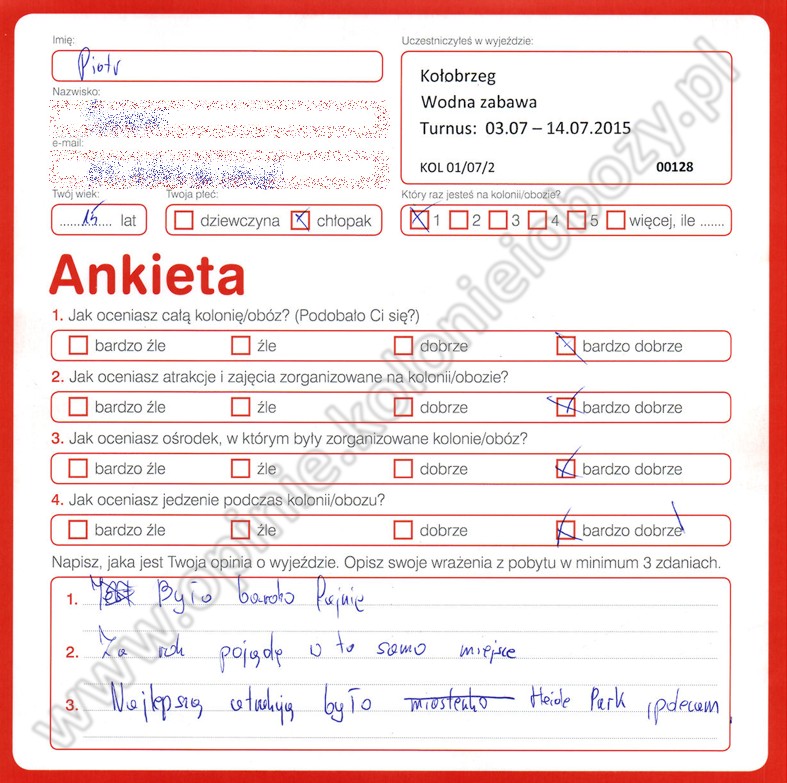 Imię:
Piotr
Nazwisko:
e-mail:
Uczestniczyłeś w wyjeździe:
Kołobrzeg
Wodna zabawa
Turnus: 03.07 – 14.07.2015
KOL 01/07/2 00128
Twój wiek:
15 lat
Twoja płeć:
dziewczyna chłopak
Który raz jesteś na kolonii/obozie?
1 2 3 4 5 więcej, ile .......
Ankieta
1. Jak oceniasz całą kolonię/obóz? (Podobało Ci się?)
bardzo źle źle dobrze bardzo dobrze
2. Jak oceniasz atrakcje i zajęcia zorganizowane na kolonii/obozie?
bardzo źle źle dobrze bardzo dobrze
3. Jak oceniasz ośrodek, w którym były zorganizowane kolonie/obóz?
bardzo źle źle dobrze bardzo dobrze
4. Jak oceniasz jedzenie podczas kolonii/obozu?
bardzo źle źle dobrze bardzo dobrze
Napisz, jaka jest Twoja opinia o wyjeździe. Opisz swoje wrażenia z pobytu w minimum 3 zdaniach.
1. Było bardzo fajnie
2. Za rok pojadę w to samo miejsce
3. Najlepszą atrakcją było Heide Park, polecam
www.opinie.kolonieiobozy.pl